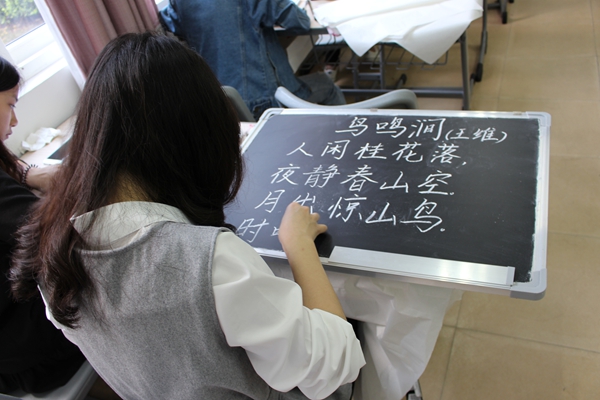 鸟鸣涧(王维)
人闲桂花落，
夜静春山空。
月出惊山鸟。
时